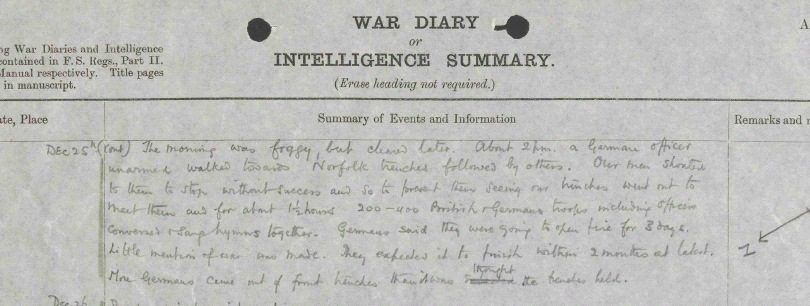 WAR DIARY
or
INTELLIGENCE SUMMARY.
(Erase heading not required.)
A
ng War Diaries and Intelligence
contained in F. S. Regs., Part II.
Manual respectively. Title pages
in manuscript.
ate, Place
Summary of Events and Information
Remarks and r
Dec 25th (cont) The morning was foggy, but cleared later. About 2pm. a German officer
unarmed walked towards Norfolk trenches followed by others. Our men shouted
to them to stop without success and so to prevent them seeing our trenches went out to
meet them and for about 1½ hours 200-400 British & Germans troops including officers
conversed & sang hymns together. Germans said they were going to open fire for 3 days.
Little mention of war was made. They expected it to finish within 2 months at latest.
More Germans came out of front trenches than was thought the trenches held.
1
Dec 26